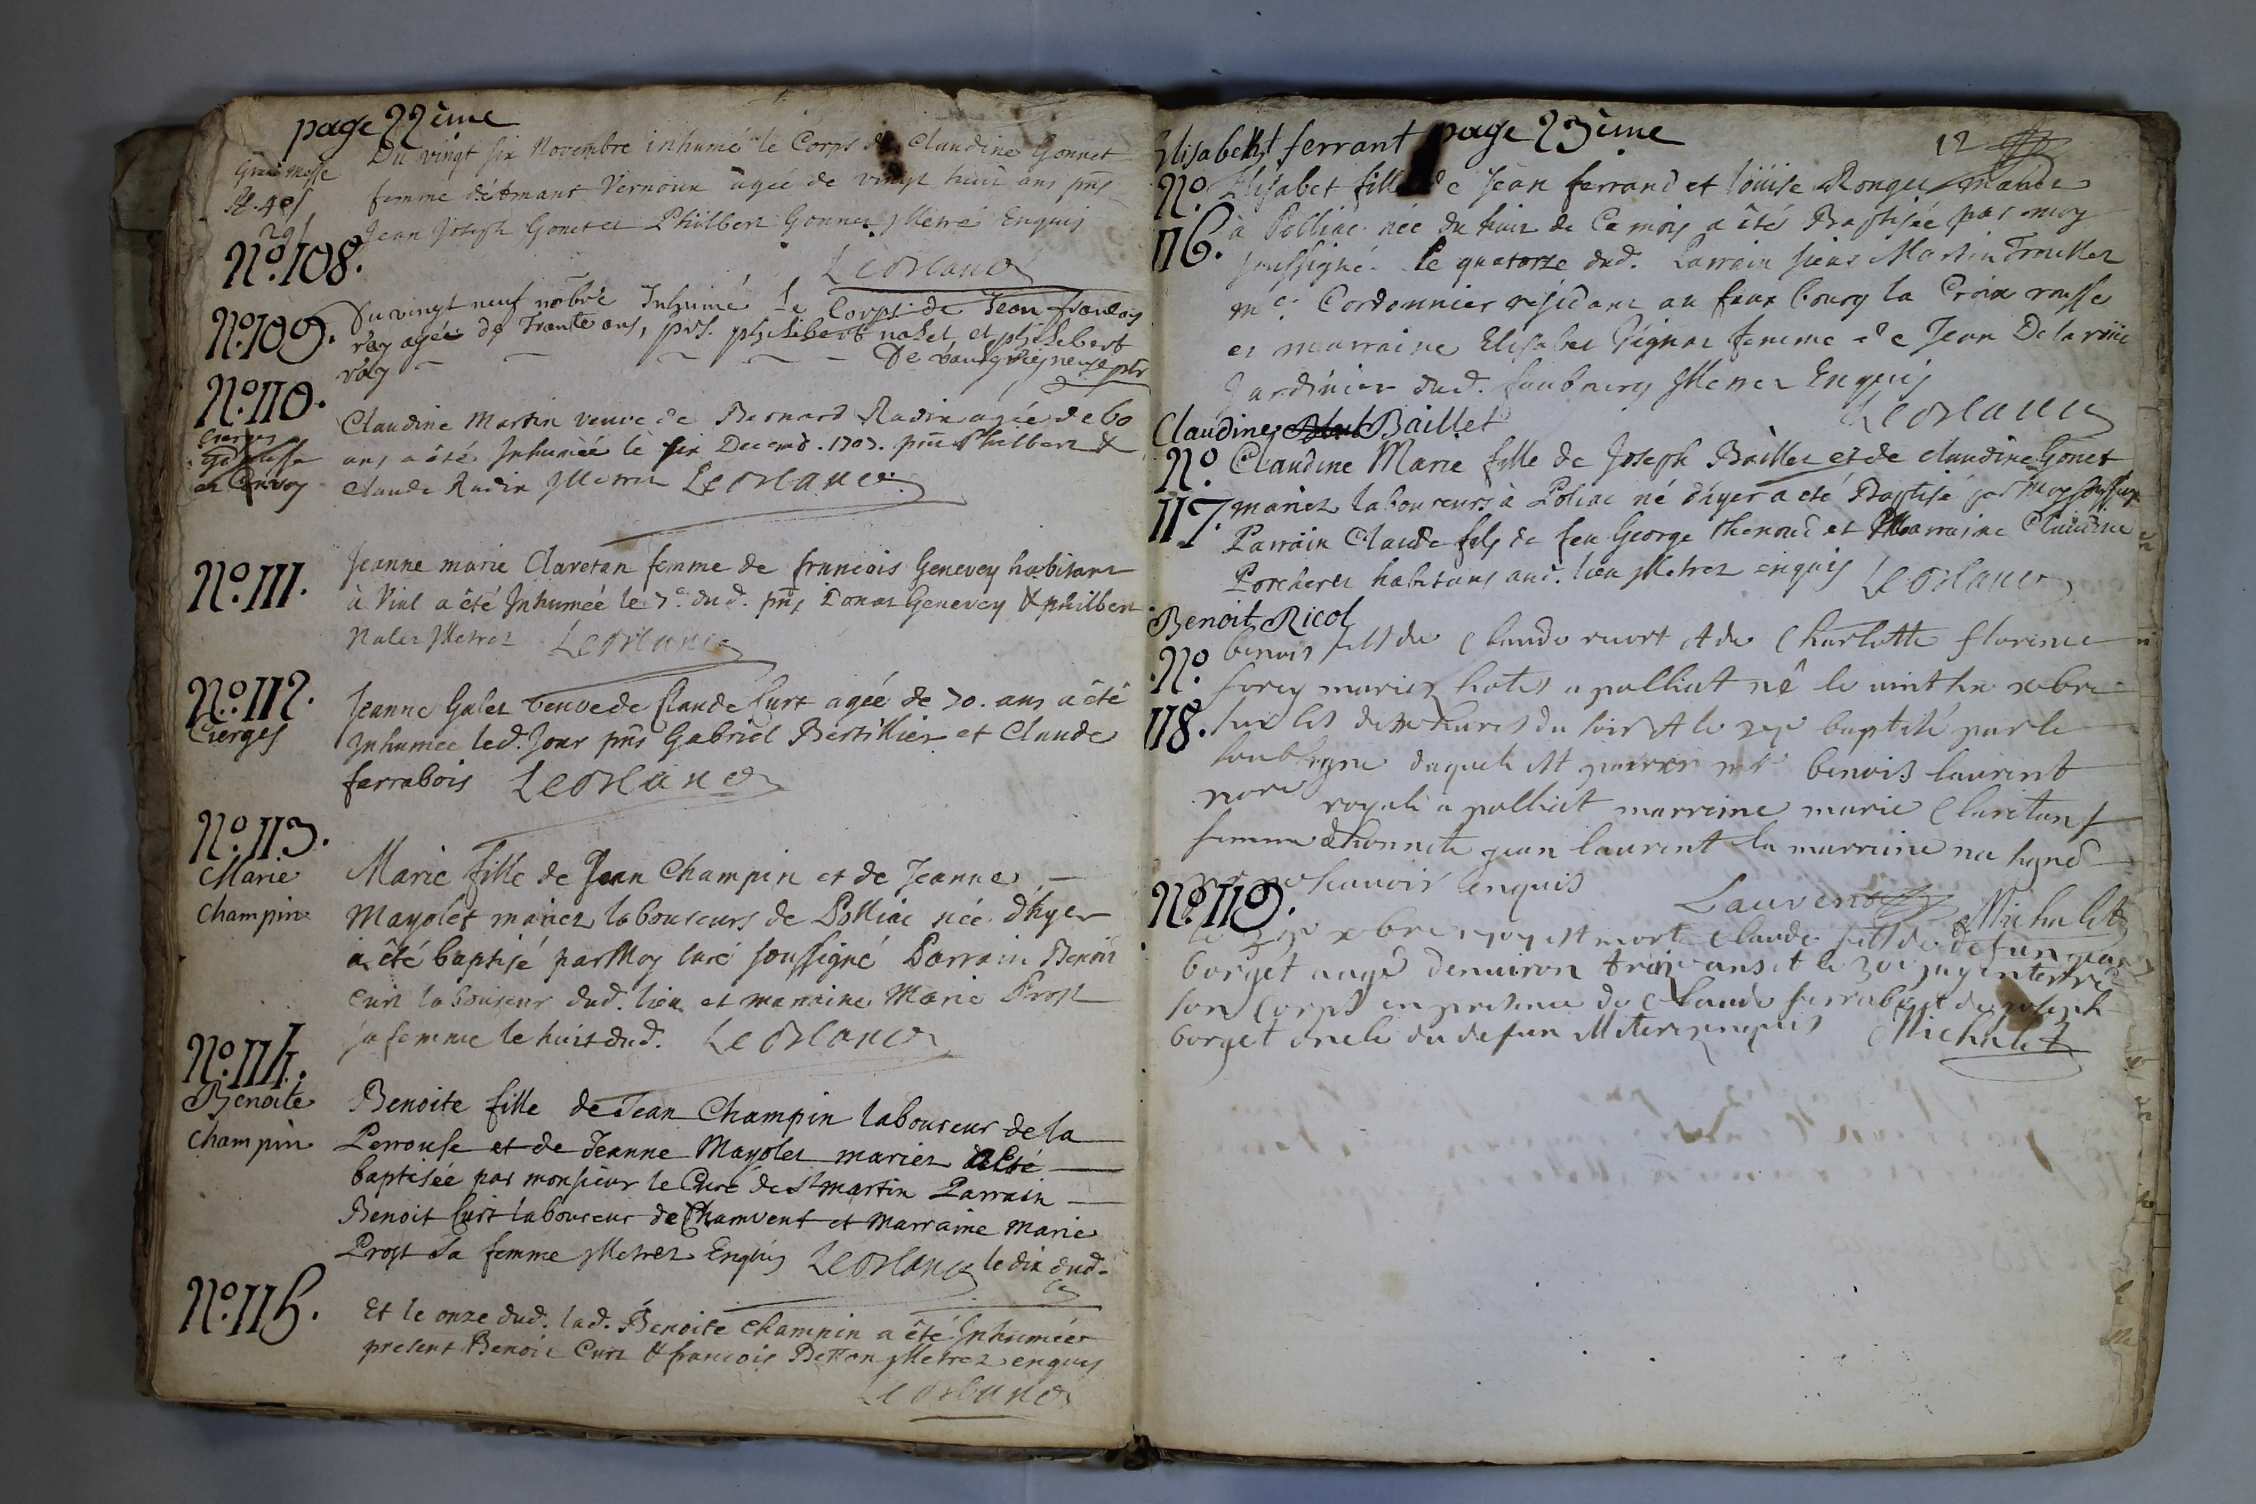 page 22ème
Grand Messe
Du vingt six Novembre inhumé le Corps de Claudine Gonnet
femme d'Amant Vernoux agée de vingt huit ans pns
Jean Joseph Gonet et Philbert Gonnet illetré Enquis
N°.108.
Leblanc
N°.109.
Du vingt neuf nobre Inhumé Le Corps de Jean francois
ray agée de Trante ans, pns. philibert nalet et philebert
ray
N°.110.
Cierges
Claudine Martin veuve de Bernard Radix agée de 60
ans a été Inhumée le six Decemb. 1707. pns Philbert &
et Convoy
Claude Radix Illetrez Leblanc
N°.111.
Jeanne marie Claretan femme de francois Genevey habitant
à Vial a été Inhumée le 7e. dud. pns Donat Genevey & philbert
Nalet Illetrez Leblanc
N°.112.
Cierges
Jeanne Galet veuve de Claude Curt agée de 70. ans a été
Inhumée led. Jour pns Gabriel Bertillier et Claude
ferrabois Leblanc
N°.113.
Marie
Champin
Marie fille de Jean Champin et de Jeanne
Mayolet mariez laboureurs de Polliac née d'hyer
a été baptisé par Moy curé soussigné Parrain Benoit
Curt laboureur dud. lieu et marraine Marie Prost
sa femme le huit dud. Leblanc
N°.114.
Benoite
champin
Benoite fille de Jean Champin laboureur de la
Perrouse et de Jeanne Mayolet mariez a été
baptisée par monsieur le Curé de St martin Parrain
Benoit Curt laboureur de Chamvent et Marraine Marie
Prost sa femme Illetrez Enquis Leblanc le dix dud.
N°.115.
Et le onze dud. lad. Benoite champin a été Inhumée
present Benoit Curt & francois Betton Illetrez enquis
Leblanc
Elisabeht ferrant page 23ème
12
N°.
116.
Elisabet fille de Jean ferrand et Loüise Ronget
à Polliac née du huit de Ce mois a été Baptisée par moy
soussigné le quatorze dud. Parrain sieur Martin
me. Cordonnier residant au faux bourg la Croix rousse
et marraine Elisabet femme de Jean Delarüe
Jardinier dud. faubourg Illetrez Enquis
Leblanc
Claudine Baillet
N°.
117.
Claudine Marie fille de Joseph Baillet et de claudine Gonet
mariez laboureurs à Poliac né d'hyer a été Baptisé par moy soussigné
Parrain Claude fils de feu George thenoud et Marraine Claudine
Porcheret habitans aud. lieu Illetrez enquis Leblanc
Benoit Ricol
N°.
118.
benois fils de Claude et de Charlotte florence
forey mariez hotes a polliat né le vint
du soir et le baptisé par le
soubsigne duquel est parrin benois laurent
nore royale a polliat marreine marie Claritan
femme dhonnete jean laurent la marreine na signé
scauoir enquis
Laurent Michalet
N°.119.
est mort Claude fils de defun jean
borget augé denuiron trois ans et le 30e jay enterré
son corps en presence de Claude ferrabois et de joseph
borget oncle du defun illiterez enquis Michalet